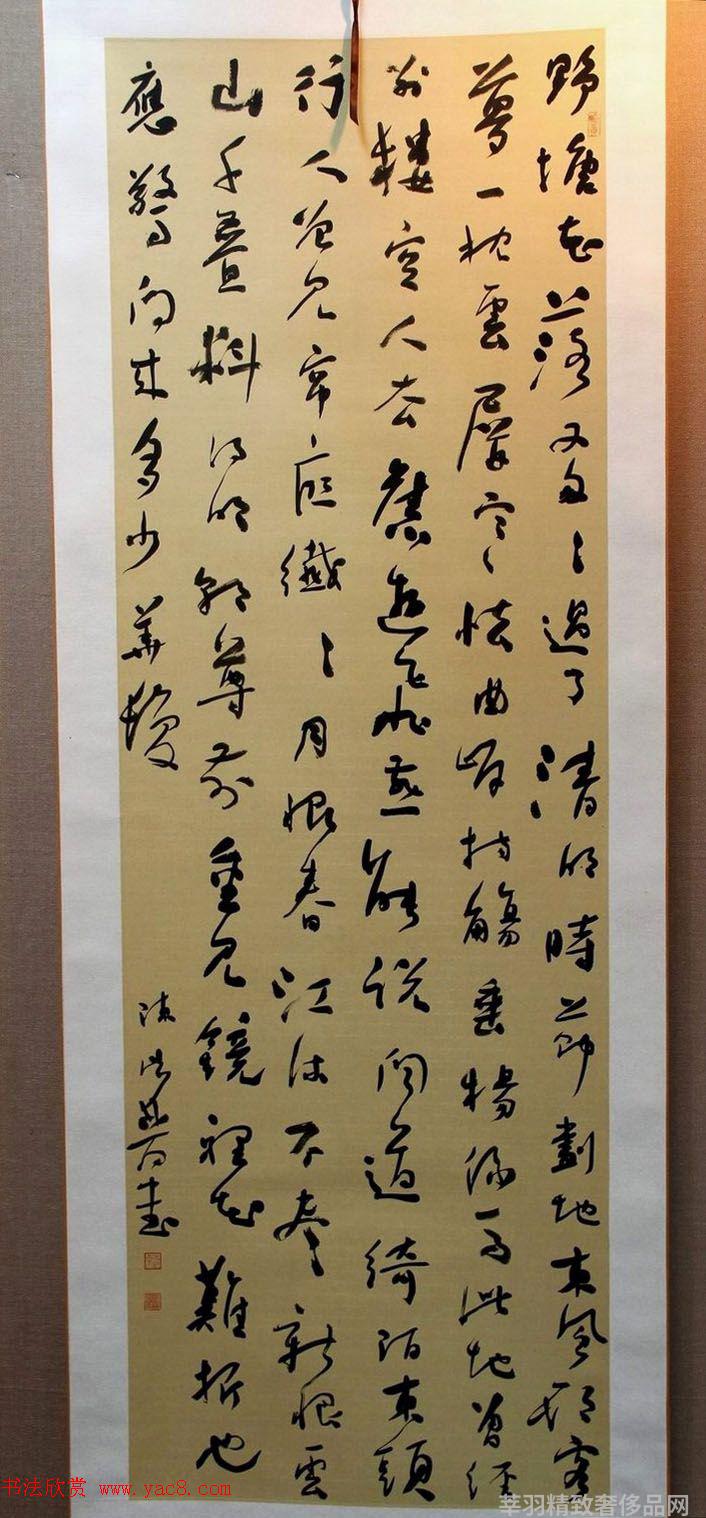 野塘花落又匆々過了清明時節劃地東風欺客
夢一枕雲屏寒々怯曲岸持觴垂楊係馬此地曾經
別樓空人去舊遊飛燕能說聞道綺陌東頭
行人曾見帘底纖々月恨春江流不盡新恨雲
山千疊料得明朝尊前重見鏡裡花難折也
應驚問來多少華髮
陳 書
书法欣赏 www.yac8.com
莘羽精致奢侈品网